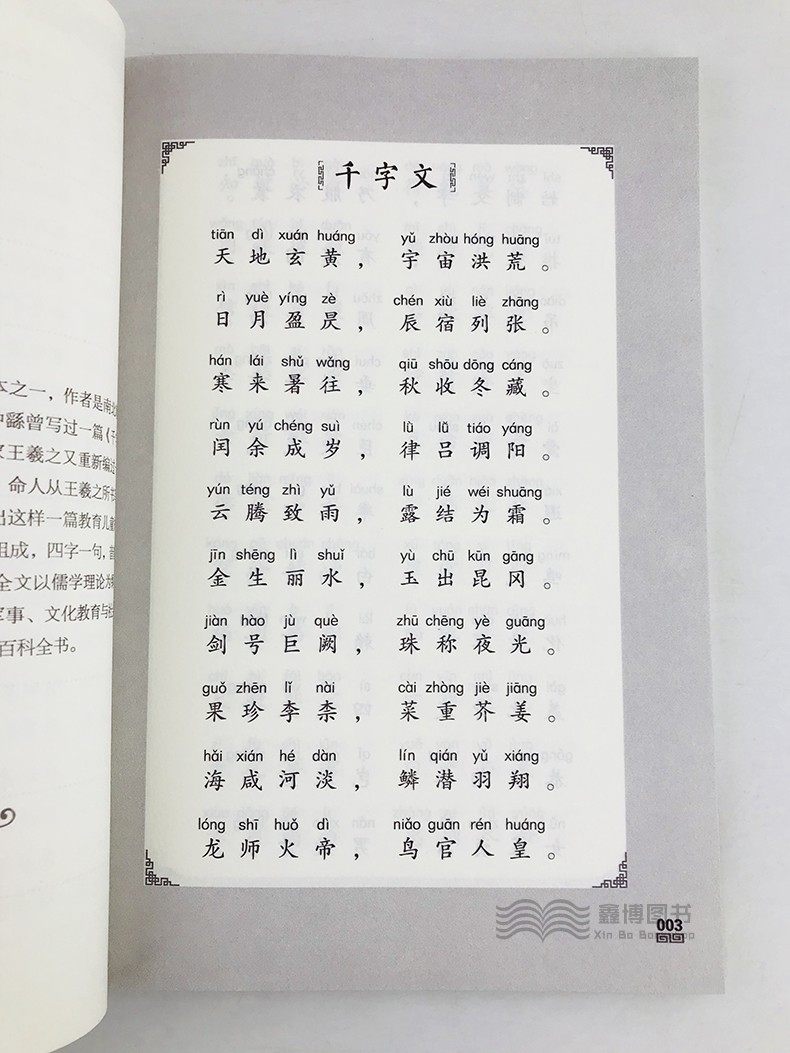 本之一，作者是南
曾写过一篇《
王羲之又重新编
命人从王羲之所
出这样一篇教育儿
组成，四字一句，
全文以儒学理论为
军事、文化教育与
百科全书。
千字文
tiān dì xuán huáng yǔ zhòu hóng huāng
天地玄黄，宇宙洪荒。
rì yuè yíng zè chén xiù liè zhāng
日月盈昃，辰宿列张。
hán lái shǔ wǎng qiū shōu dōng cáng
寒来暑往，秋收冬藏。
rùn yú chéng suì lǜ lǚ tiáo yáng
闰余成岁，律吕调阳。
yún téng zhì yǔ lù jié wéi shuāng
云腾致雨，露结为霜。
jīn shēng lì shuǐ yù chū kūn gāng
金生丽水，玉出昆冈。
jiàn hào jù què zhū chēng yè guāng
剑号巨阙，珠称夜光。
guǒ zhēn lǐ nài cài zhòng jiè jiāng
果珍李柰，菜重芥姜。
hǎi xián hé dàn lín qián yǔ xiáng
海咸河淡，鳞潜羽翔。
lóng shī huǒ dì niǎo guān rén huáng
龙师火帝，鸟官人皇。
鑫博图书
Xin Bo Bo
003